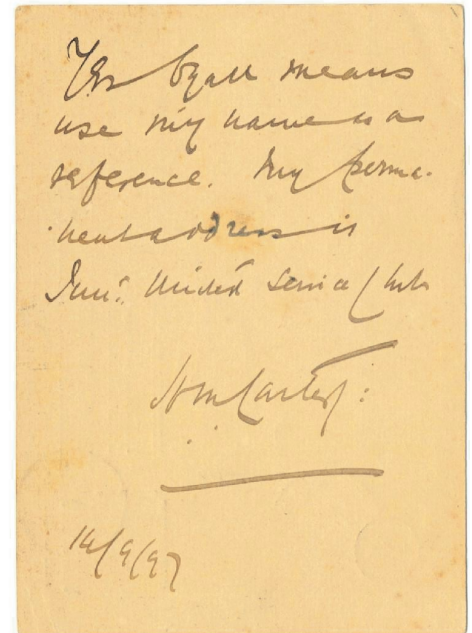 Yes by all means
use my name as a
reference. My perma-
nent address is
Junr. United Service Club
Carter
14/9/97